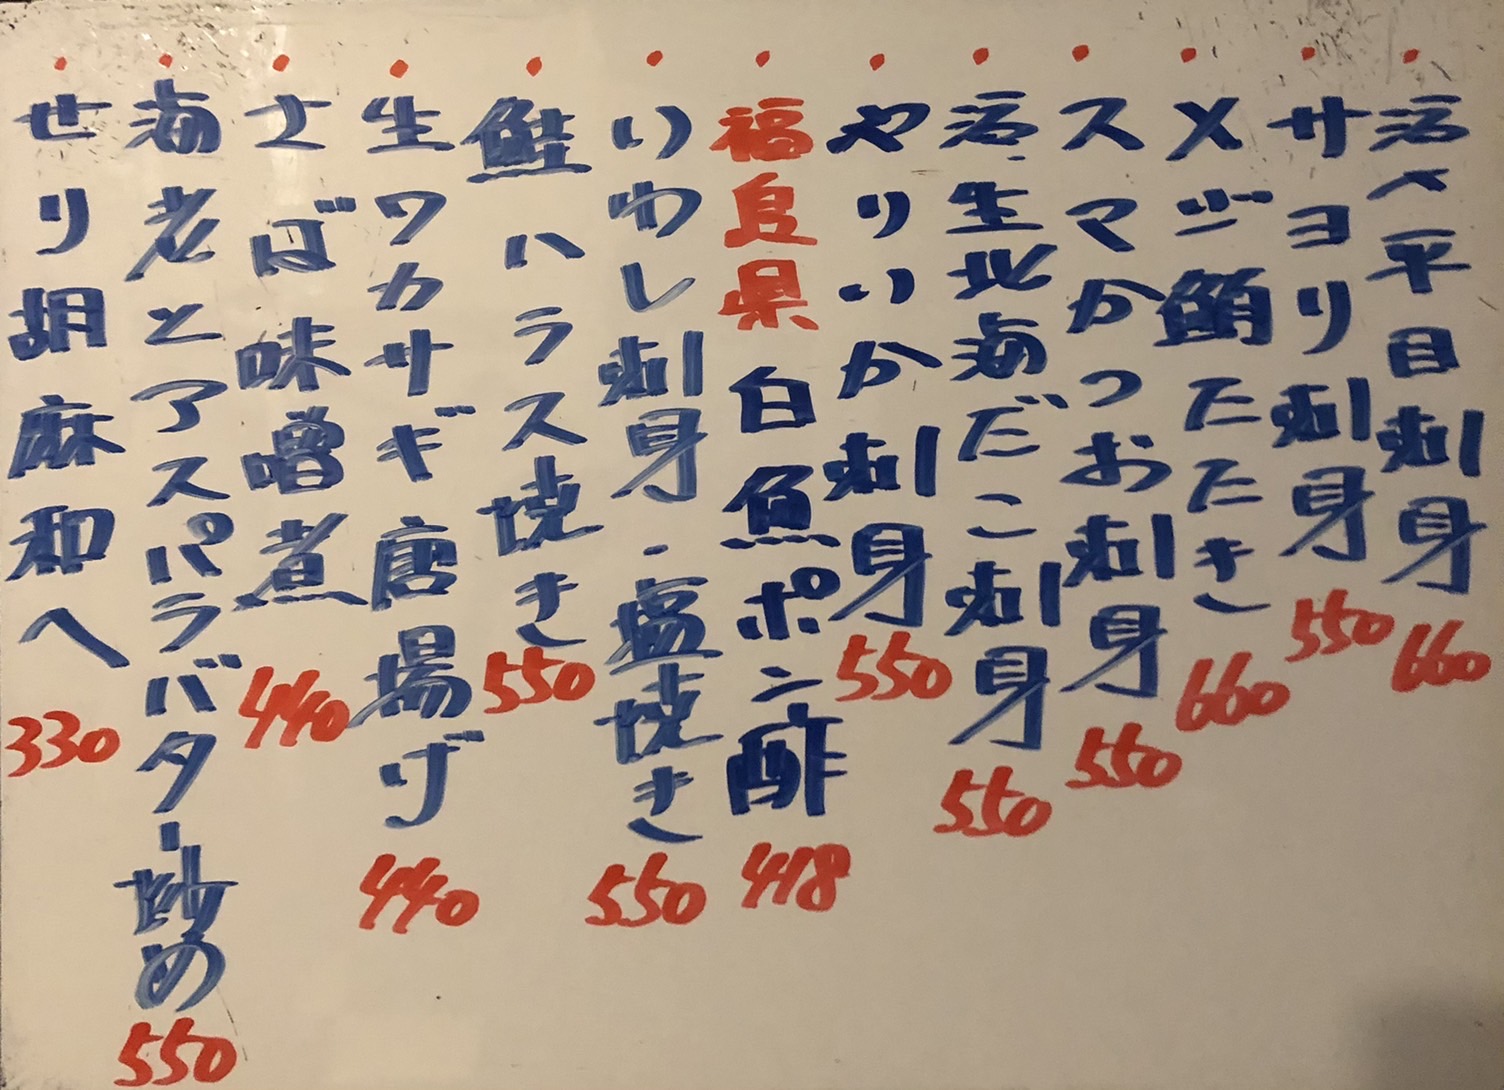 ・活〆平目刺身 660
・サヨリ刺身 550
・メジ鮪たたき 660
・スマかつお刺身 550
・活生北海だこ刺身 550
・やりいか刺身 550
・福島県白魚ポン酢 418
・いわし刺身・塩焼き 550
・鮭ハラス焼き 550
・生ワカサギ唐揚げ 440
・さば味噌煮 440
・海老とアスパラバター炒め 550
・せり胡麻和へ 330